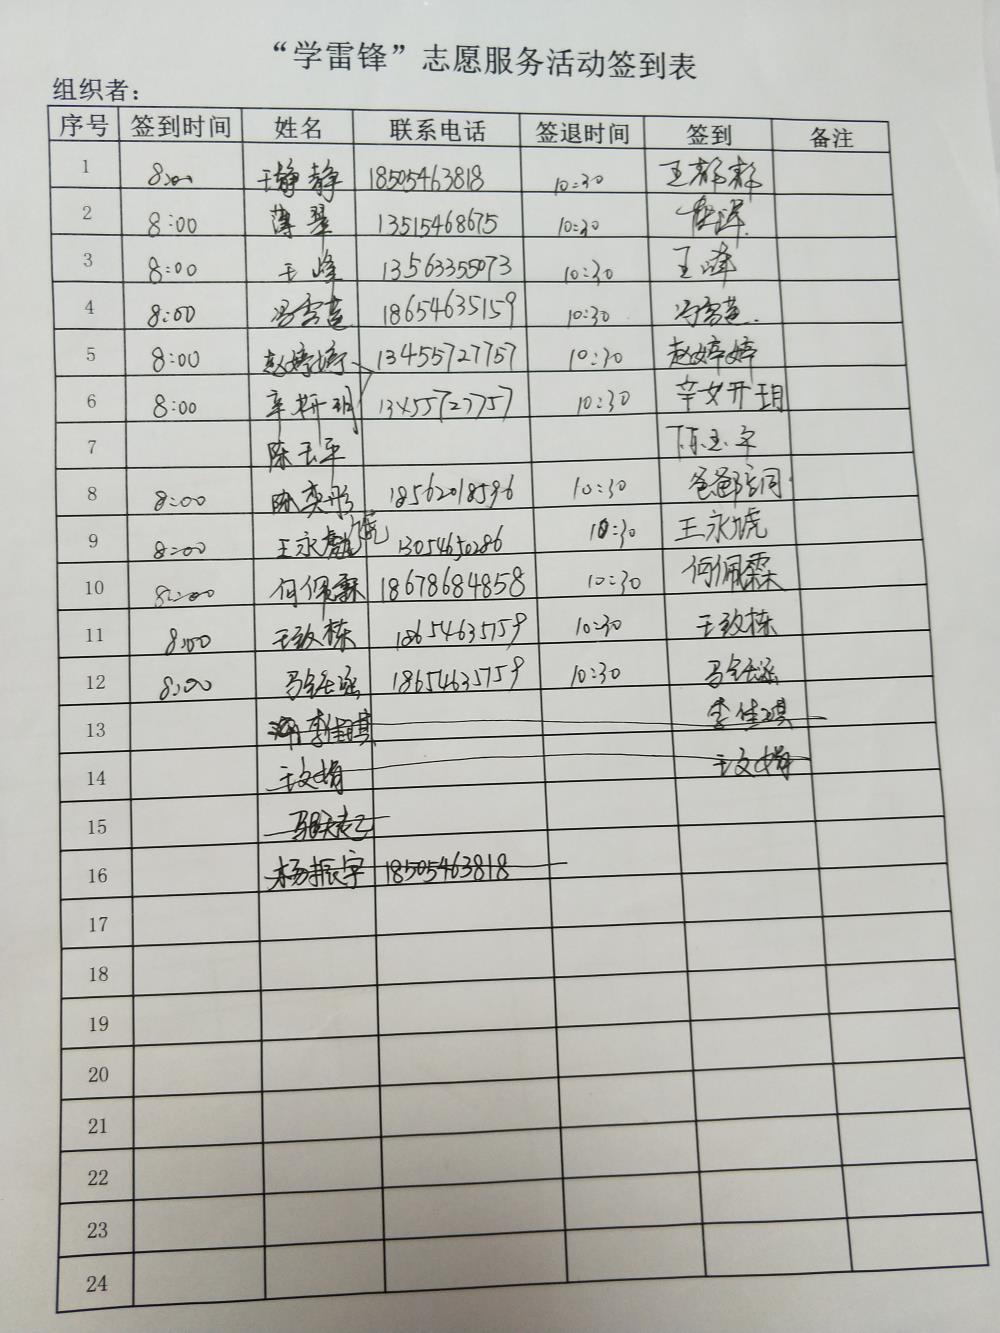 “学雷锋”志愿服务活动签到表
组织者：
序号 签到时间 姓名 联系电话 签退时间 签到 备注
1 8:00 王静静 18505463818 10:30 王静静
2 8:00 薄翠 13515468675 10:30
3 8:00 王峰 13563355073 10:30 王峰
4 8:00 冯雪莲 18654635159 10:30 冯雪莲
5 8:00 赵婷婷 13455727757 10:30 赵婷婷
6 8:00 辛妍玥 13455727757 10:30 辛妍玥
7 陈玉平 陈玉平
8 8:00 陈奕彤 18562018596 10:30 爸爸陪同
9 8:00 王永虓 13054650286 10:30 王永虓
10 8:00 何佩霖 18678684858 10:30 何佩霖
11 8:00 王致栋 18654635159 10:30 王致栋
12 8:00 马钰涵 18654635159 10:30 马钰涵
13 李佳琪 李佳琪
14 王文娟 王文娟
15
16 杨振宇 18505463818
17
18
19
20
21
22
23
24